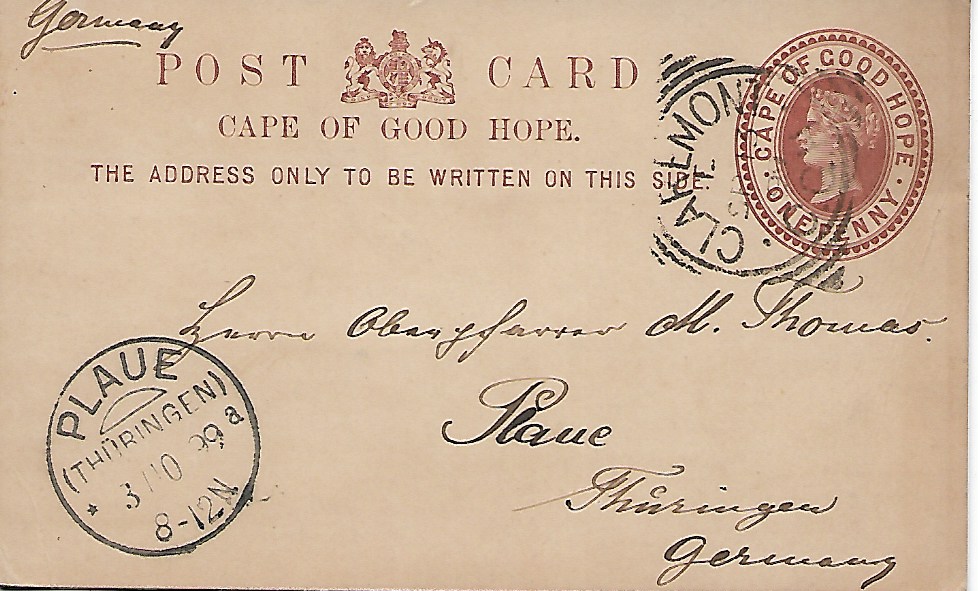 Germany
POST CARD
CAPE OF GOOD HOPE.
THE ADDRESS ONLY TO BE WRITTEN ON THIS SIDE.
CAPE OF GOOD HOPE
ONE PENNY
CLAREMONT
Herrn Oberpfarrer M. Thomas.
Plaue
Thüringen
Germany
PLAUE
(THÜRINGEN)
3 10 99 a
8-12N